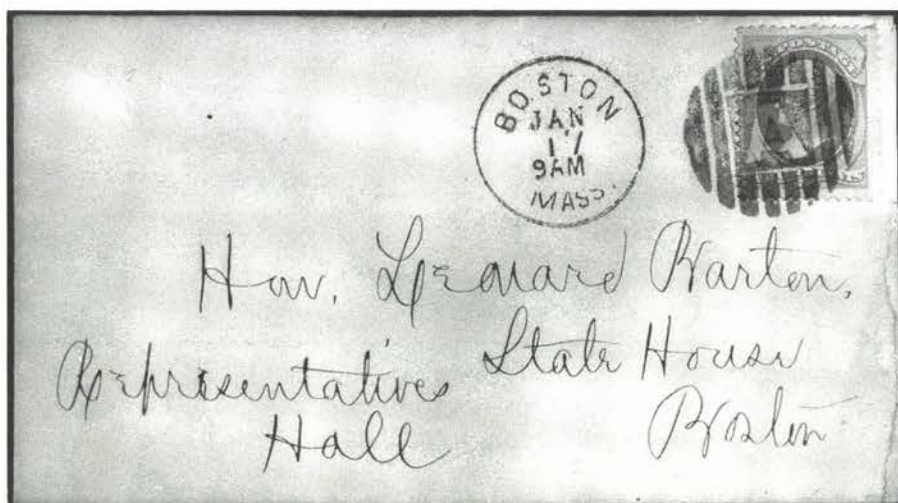 BOSTON
JAN
17
9AM
MASS.
Hon. Leonard Barton,
State House
Representatives
Hall
Boston